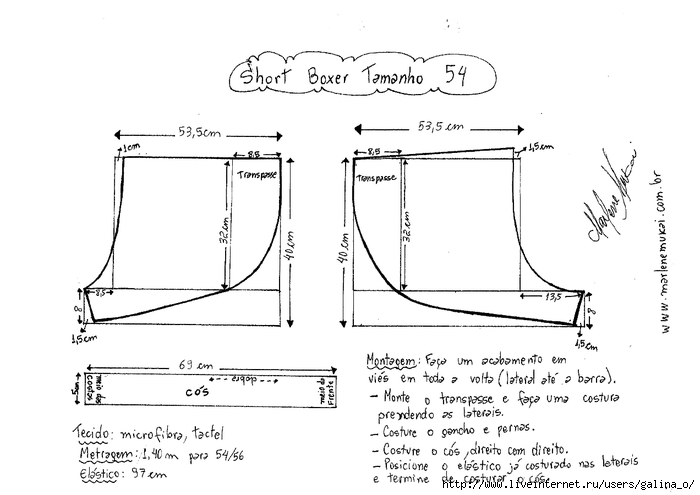 Short Boxer Tamanho 54
53,5cm
1cm
8,5
Transpasse
32cm
40cm
8,5
8
1,5cm
53,5 cm
1,5cm
8,5
Transpasse
32cm
40cm
13,5
8
1,5cm
www.marlenemukai.com.br
69 cm
5cm
meio das costas
cós
dobra
meio da frente
Tecido: microfibra, tactel
Metragem: 1,40m para 54/56
Elástico: 97 cm
Montagem: Faça um acabamento em
viés em toda a volta (lateral até a barra).
- Monte o transpasse e faça uma costura
prendendo as laterais.
- Costure o gancho e pernas.
- Costure o cós, direito com direito.
- Posicione o elástico já costurado nas laterais
e termine de costurar o cós.
http://www.liveinternet.ru/users/galina_o/